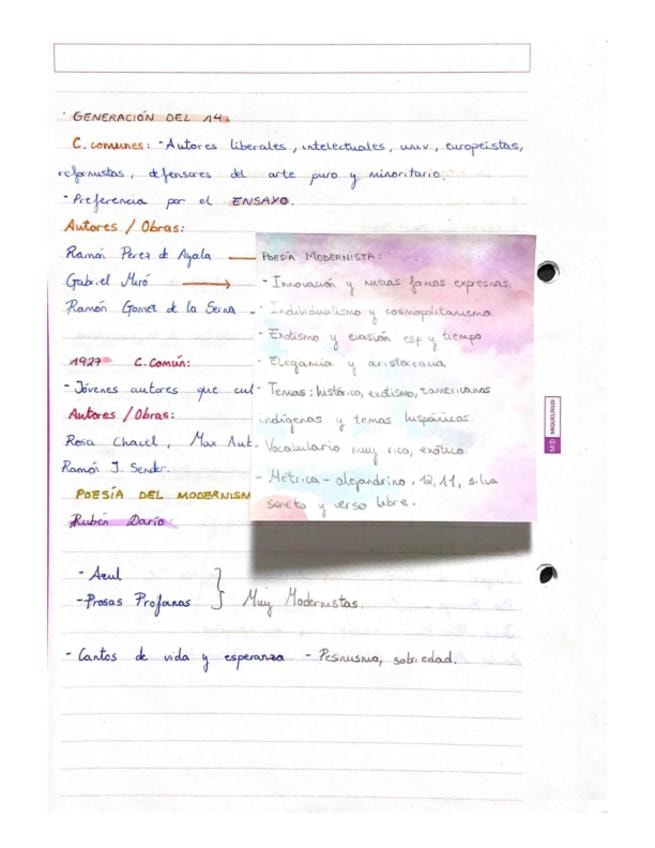 · GENERACIÓN DEL 14:
C. comunes: - Autores liberales, intelectuales, univ., europeistas,
reformistas, defensores del arte puro y minoritario.
- Preferencia por el ENSAYO.
Autores / Obras:
Ramón Perez de Ayala
Gabriel Miró →
Ramón Gomez de la Serna
1927 C. Común:
- Jóvenes autores que cul
Autores / Obras:
Rosa Chacel, Max Aub
Ramón J. Sender.
POESÍA DEL MODERNISM
Rubén Darío:
- Azul
- Prosas Profanas } Muy Modernistas.
- Cantos de vida y esperanza - Pesimismo, sobriedad.
POESÍA MODERNISTA:
- Innovación y nuevas formas expresivas
- Individualismo y cosmopolitanismo
- Exotismo y evasión esp y tiempo
- Elegancia y aristocracia
- Temas: histórico, exotismo,
indígenas y temas hispánicos.
- Vocabulario muy rico, exótico.
- Métrica - alejandrino, 12, 11, silva
soneto y verso libre.
MIQUELRIUS